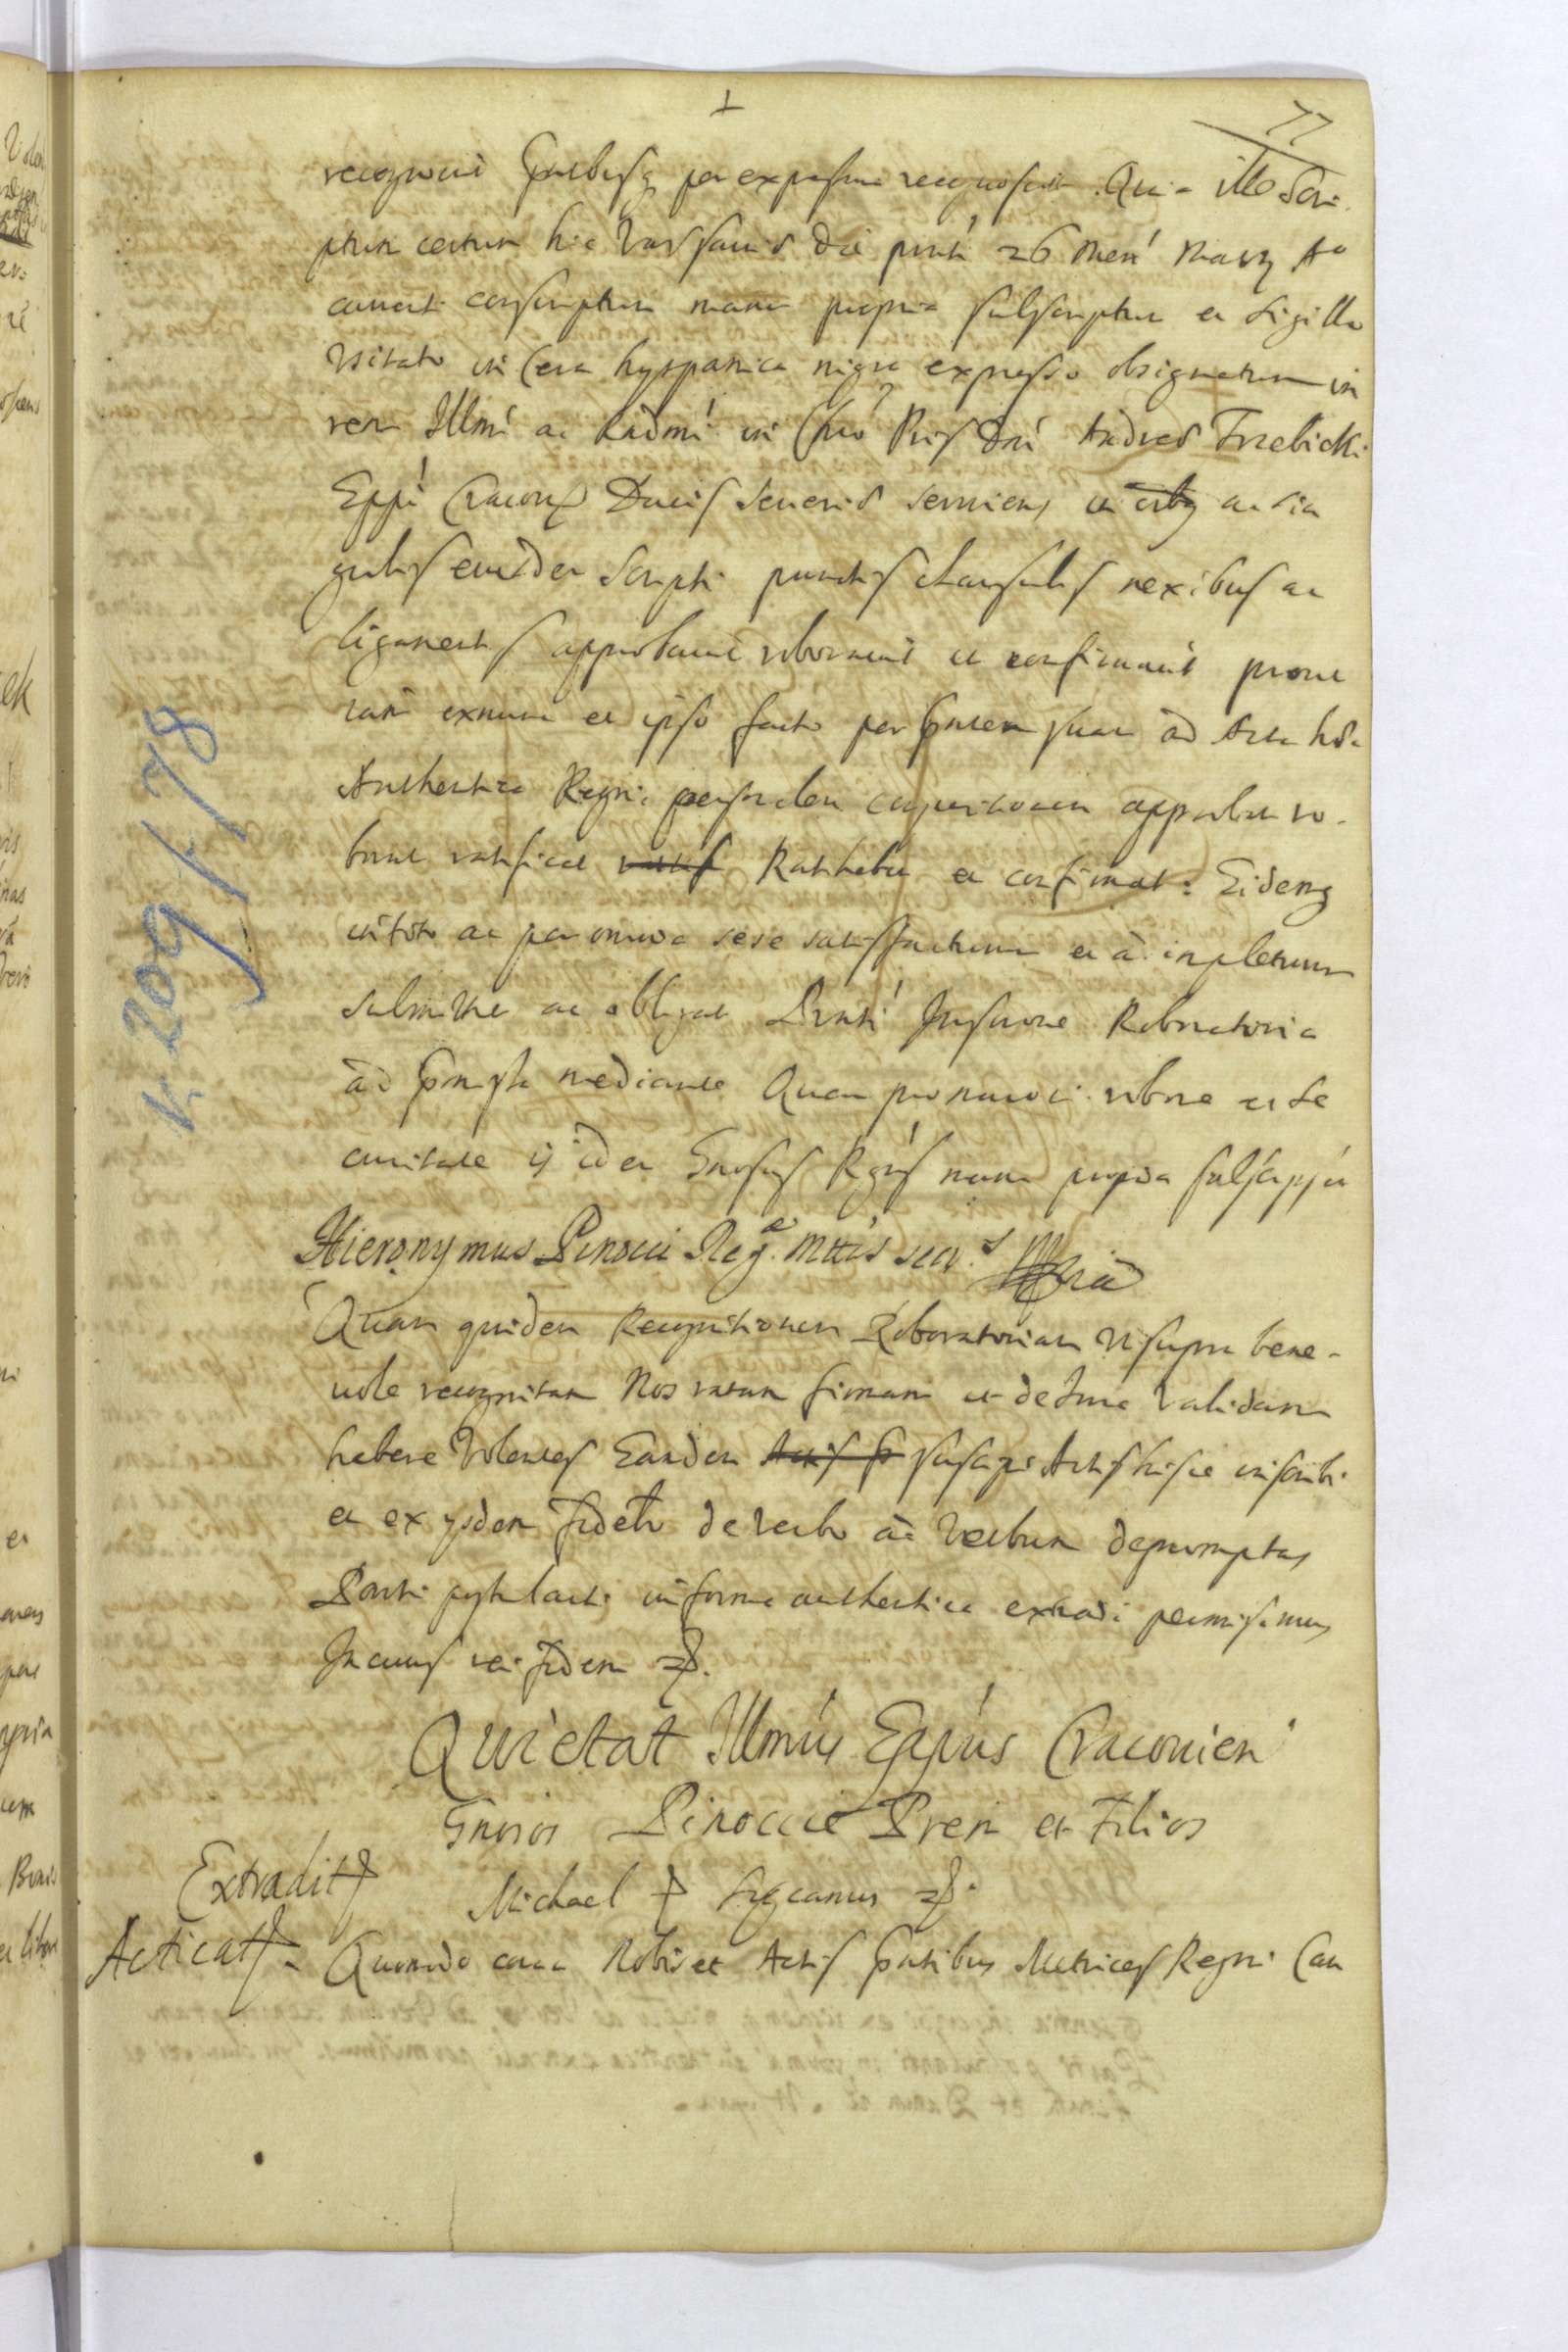 77
recognovit præsentibusq per expressum recognoscit. Quia illo Scri
ptum certum hic Varsaviæ die pñti 26 Men' Marty Ao
currenti conscriptum manu propria subscriptum et Sigillo
usitato in Cera hyspanica nigra expresso obsignatum in
rem Illmi ac Rndmi in Chro Pris Dni Andreæ Trzebicki
Eppi Cracovien Ducis Severiæ serviens in oibus ac sin
gulis eiusdem Scripti punctis clausulis nexibus ac
ligamentis approbavit roboravit et confirmavit prout
iam exnunc et ipso facto per pñtem suam ad Acta hæc
Authentica Regni personalem comparitionem approbat ro-
borat ratificat Ratihabet et confirmat: Eidemq
in toto ac per omnia sese satisfacturum et adimpleturum
submittit ac obligat Pñti Inscriptione Roboratoria
ad præmissa mediante Quam pro maiori robore et se
curitate idem Gnosus Rgns manu propria subscripsit
Hieronymus Pinocci Reg. Mttis secr. Mpria
Quam quidem Recognitionem Roboratoriam ut supra bene-
vole recognitam Nos ratam firmam et de Jure validam
habere Volentes Eandem suscipi Actis hisce inscribi
et ex ijsdem fideliter de verbo ad verbum depromptam
Parti postulanti in forma authentica extradi permisimus
In cuius rei fidem etc.
Quietat Illmus Eppus Cracovien'
Gnosos Pinoccie Prem et Filios
Extradit
Michael etc
Acticat
Quomodo coram Nobis et Actis pñtibus Metrices Regni Can
k. 209/178